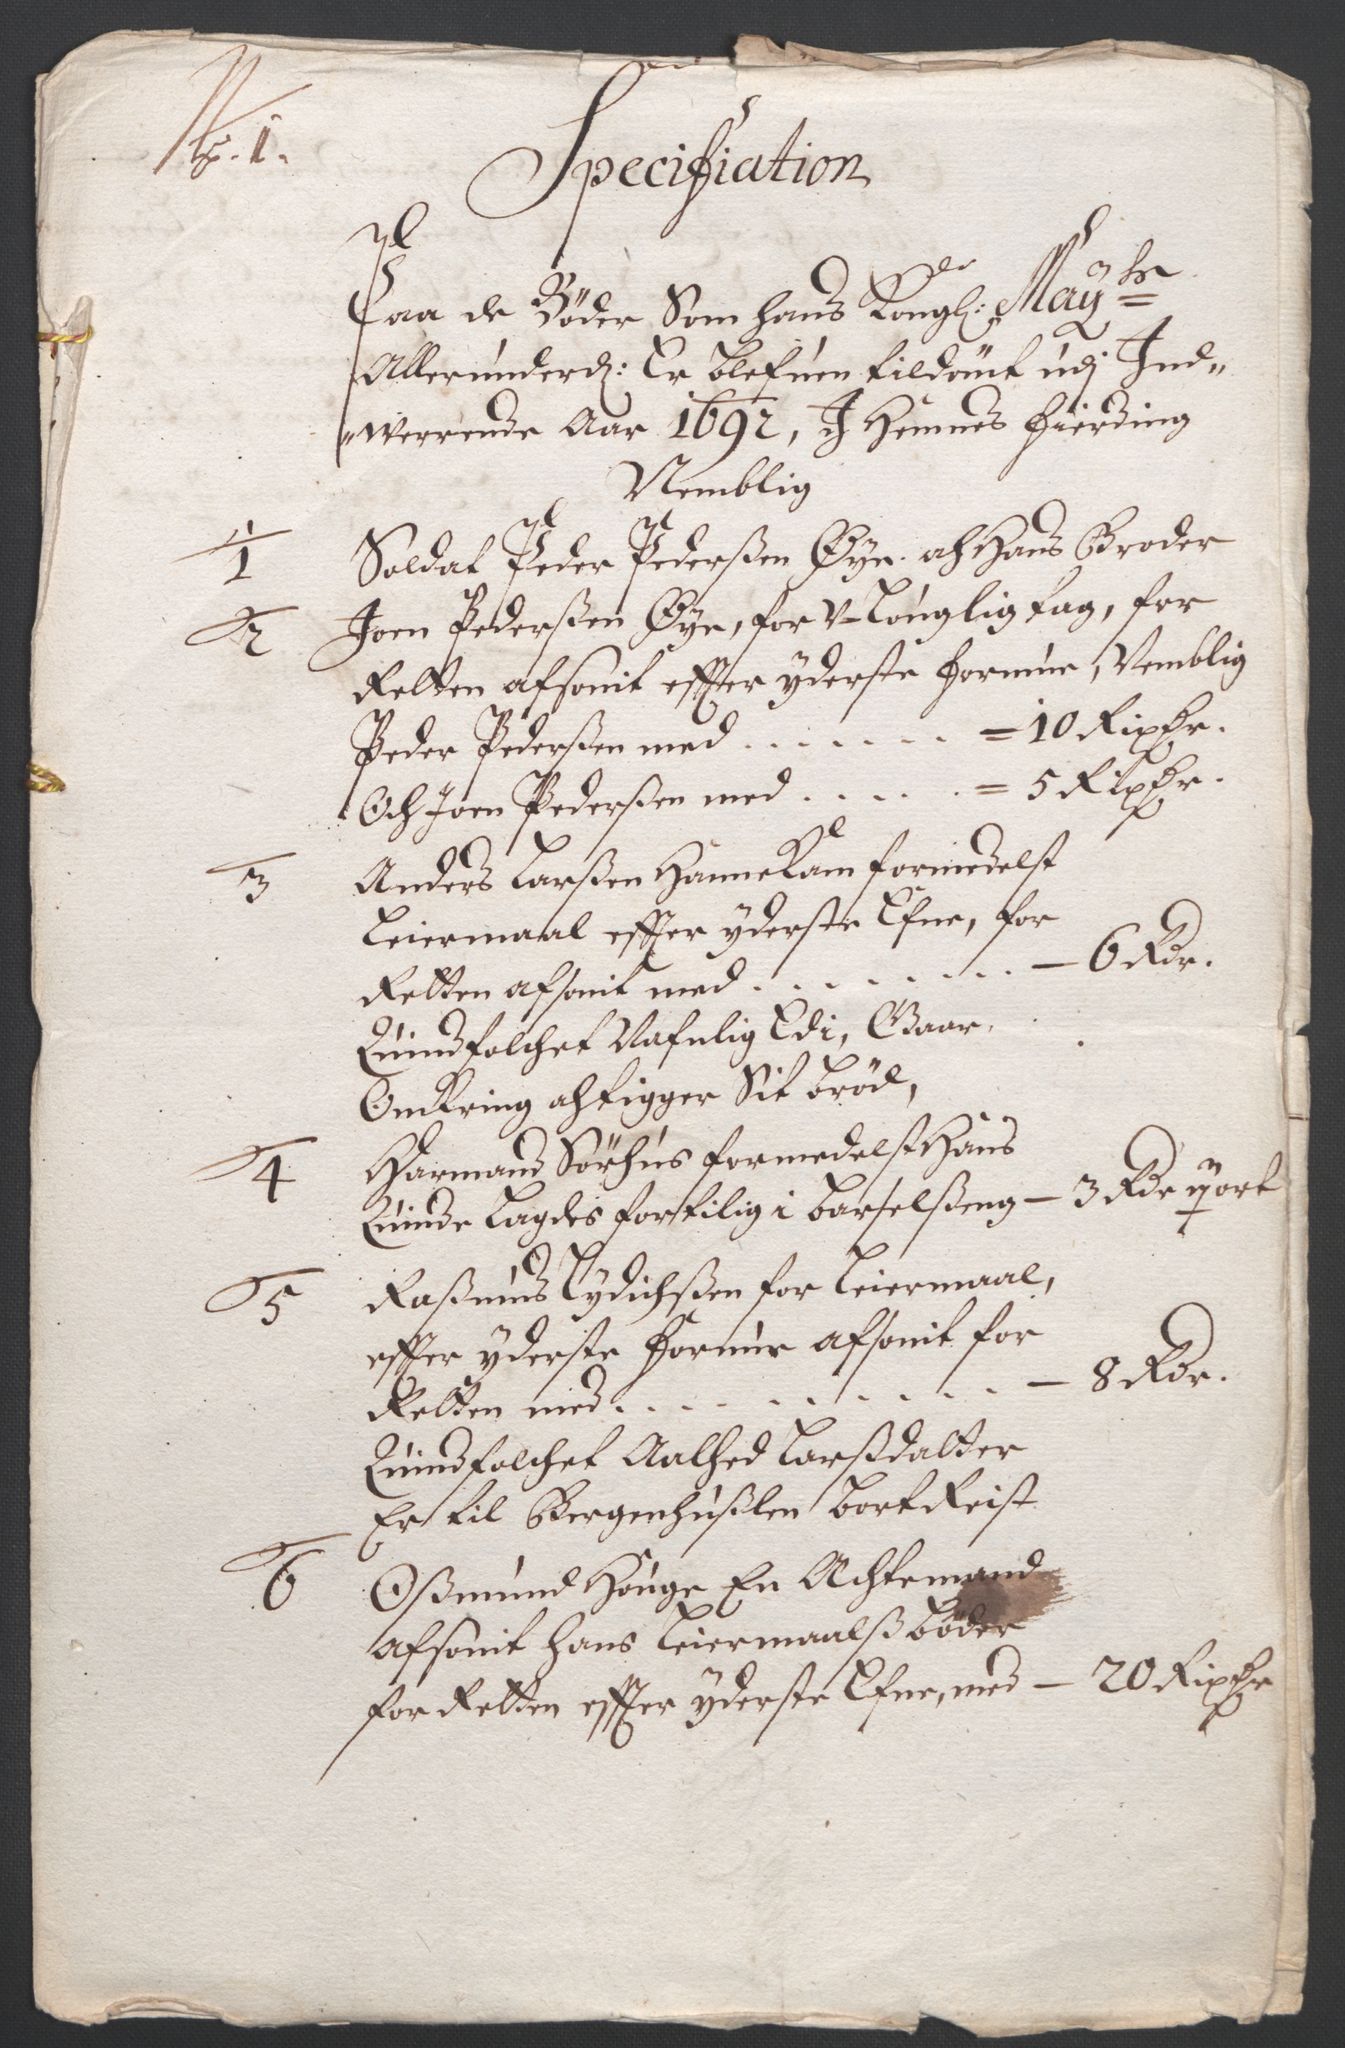 No. 1.
Specification
Paa de Böder Som hans Kongl: Mayts
Allerunderd: Er blefuen tildömt udj Ind-
-werrende Aar 1692, J Hemnes Fierding
Nemblig
1 Soldat Peder Pederßen Øye. och Hans Broder
2 Joen Pederßen Øye, for U-Louglig tag, for
Retten afsonit effter yderste formue, Nemblig
Peder Pederßen med . . . . . . . = 10 Rixdr.
Och Joen Pederßen med . . . . . = 5 Rixdr.
3 Anders Larßen Hannekam formedelst
Leiermaal effter yderste Efne, for
Retten afsonit med . . . . . . . . — 6 Rdr.
Quindfolchet Nafnlig Edi, Gaar
Omkring och tigger Sit bröd,
4 Harmand Sörhus formedelst Hans
Quinde Lagdes fortilig i barselßeng — 3 Rdr ort
5 Raßmus Lydichßen for Leiermaal,
effter yderste formue afsonit for
Retten med . . . . . . . . . — 8 Rdr.
Quindfolchet Aalhed Larßdatter
Er til Bergenhußlen bortreist
6 Oßmund Houge En Achtemand
afsonit hans Leiermaalß böder
for Retten effter yderste Efne, med — 20 Rixdr